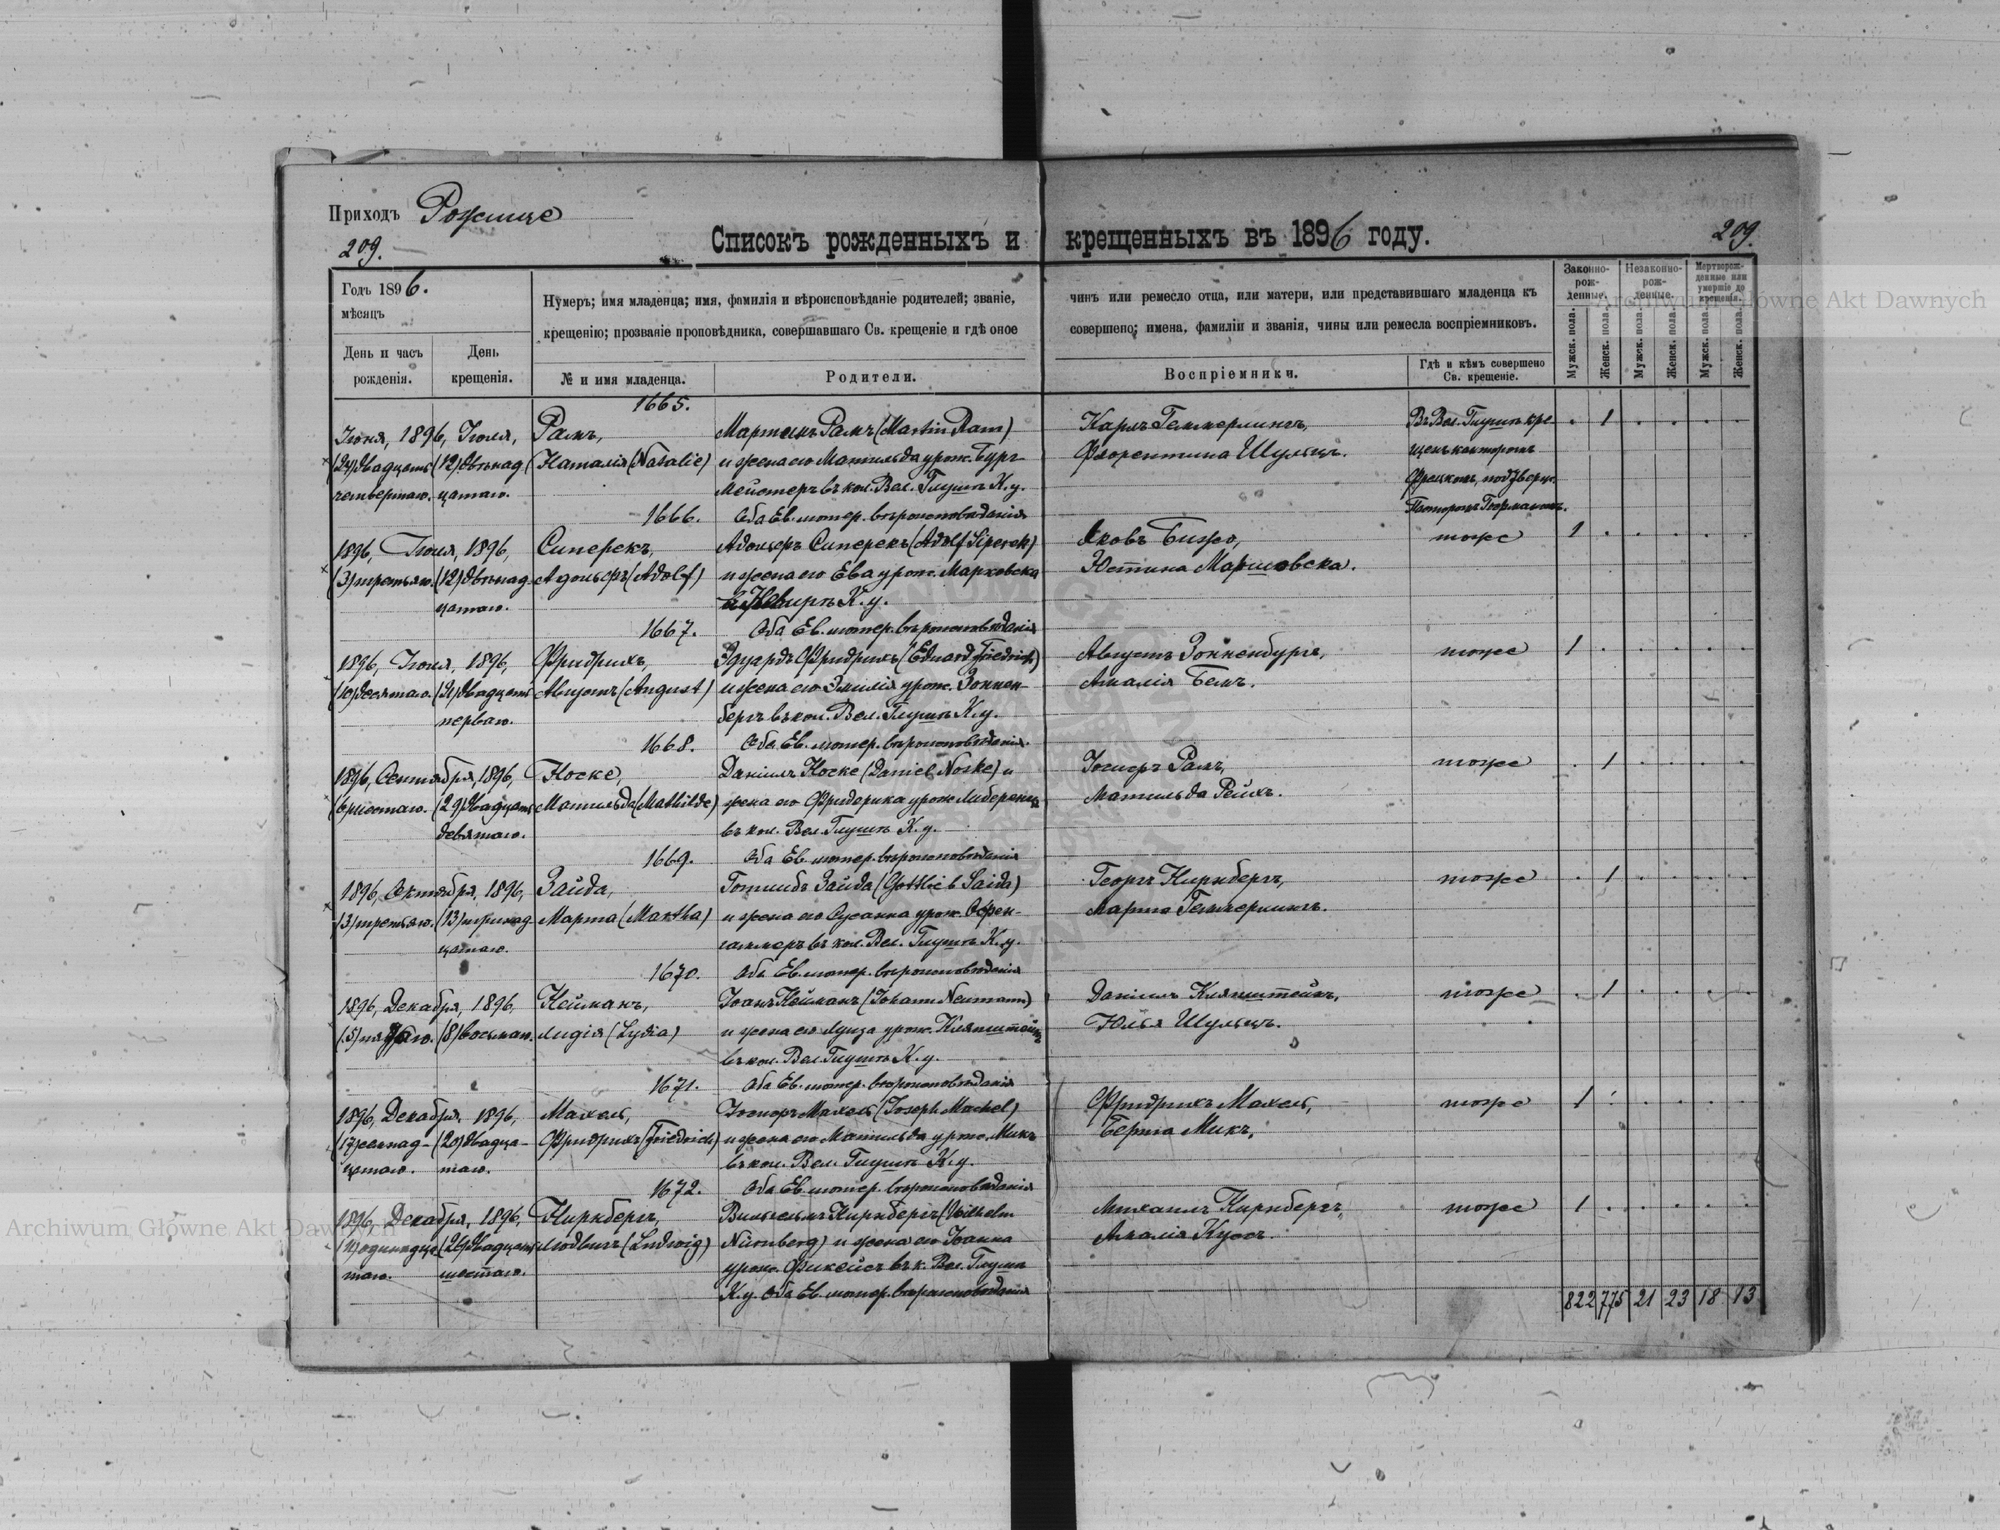 Приходъ Рожище
209.
Списокъ рожденныхъ и крещенныхъ въ 1896 году.
209.
Годъ 1896.
мѣсяцъ
День и часъ рожденія.
День крещенія.
Нумеръ; имя младенца; имя, фамилія и вѣроисповѣданіе родителей; званіе, чинъ или ремесло отца, или матери, или представившаго младенца къ
крещенію; прозваніе проповѣдника, совершавшаго Св. крещеніе и гдѣ оное совершено; имена, фамиліи и званія, чины или ремесла воспріемниковъ.
№ и имя младенца.
Родители.
Воспріемники.
Гдѣ и кѣмъ совершено Св. крещеніе.
Законно-рож-денные.
Незаконно-рож-денные.
Мертворож-денные или умершіе до крещенія.
Мужск. пола.
Женск. пола.
Мужск. пола.
Женск. пола.
Мужск. пола.
Женск. пола.
1665.
Іюня, 1896, Іюля, Рамъ, Мартинъ Рамъ (Martin Ram) Карлъ Геммерлингъ, Въ Вел. Глушѣ кре- 1
(24) двадцать (12) двѣнад- Наталія (Natalie) и жена его Матильда урож. Бург- Флорентина Шульцъ. щенъ канторомъ
четвертаго. цатаго. мейстеръ въ кол. Вел. Глушѣ К. у.
Оба Ев. лютер. вѣроисповѣданія Пасторомъ
1666.
1896, Іюля, 1896, Сиперекъ, Адольфъ Сиперекъ (Adolf Siperek) Яковъ тоже 1
(3) третьяго. (12) двѣнад- Адольфъ (Adolf) и жена его Ева урож. Марковска Юстина
цатаго. К. у.
Оба Ев. лютер. вѣроисповѣданія
1667.
1896, Іюля, 1896, Фридрихъ, Эдуардъ Фридрихъ (Eduard Friedrich) Августъ Зонненбургъ, тоже 1
(10) десятаго. (21) двадцать Августъ (August) и жена его Эмилія урож. Зоннен- Амалія Бемъ.
перваго. бергъ въ кол. Вел. Глушѣ К. у.
Оба Ев. лютер. вѣроисповѣданія.
1668.
1896, Сентября, 1896, Носке, Даніилъ Носке (Daniel Noske) и Іосифъ Рамъ, тоже 1
(6) шестаго. (29) двадцать Матильда (Mathilde) жена его Фридерика урож. Матильда Рейхъ.
девятаго. въ кол. Вел. Глушѣ К. у.
Оба Ев. лютер. вѣроисповѣданія
1669.
1896, Октября, 1896, Зайда, Готлибъ Зайда (Gottlieb Saida) Георгъ Нирнбергъ, тоже 1
(3) третьяго. (13) тринад- Марта (Martha) и жена его Сусанна урож. Марта Геммерлингъ.
цатаго. въ кол. Вел. Глушѣ К. у.
Оба Ев. лютер. вѣроисповѣданія
1670.
1896, Декабря, 1896, Нейманъ, Іоаннъ Нейманъ (Johann Neumann) Даніилъ Кляпштейнъ, тоже 1
(5) пятаго. (8) восьмаго. Лидія (Lydia) и жена его Луиза урож. Кляпштейнъ Юлья Шульцъ.
въ кол. Вел. Глушѣ К. у.
Оба Ев. лютер. вѣроисповѣданія
1671.
1896, Декабря, 1896, Махель, Іосифъ Махель (Joseph Machel) Фридрихъ Махель, тоже 1
(20) двадца- Фридрихъ (Friedrich) и жена его Матильда урож. Микъ Берта Микъ,
цатаго. таго. въ кол. Вел. Глушѣ К. у.
Оба Ев. лютер. вѣроисповѣданія
1672.
1896, Декабря, 1896, Нирнбергъ, Вильгельмъ Нирнбергъ (Wilhelm Михаилъ Нирнбергъ, тоже 1
(11) одиннадца- (26) двадцать Людвигъ (Ludwig) Nürnberg) и жена его Іоанна Амалія
таго. шестаго. урож. въ к. Вел. Глуша
К. у. Оба Ев. лютер. вѣроисповѣданія
822 775 21 23 18 13
Archiwum Główne Akt Dawnych
Archiwum Główne Akt Dawnych